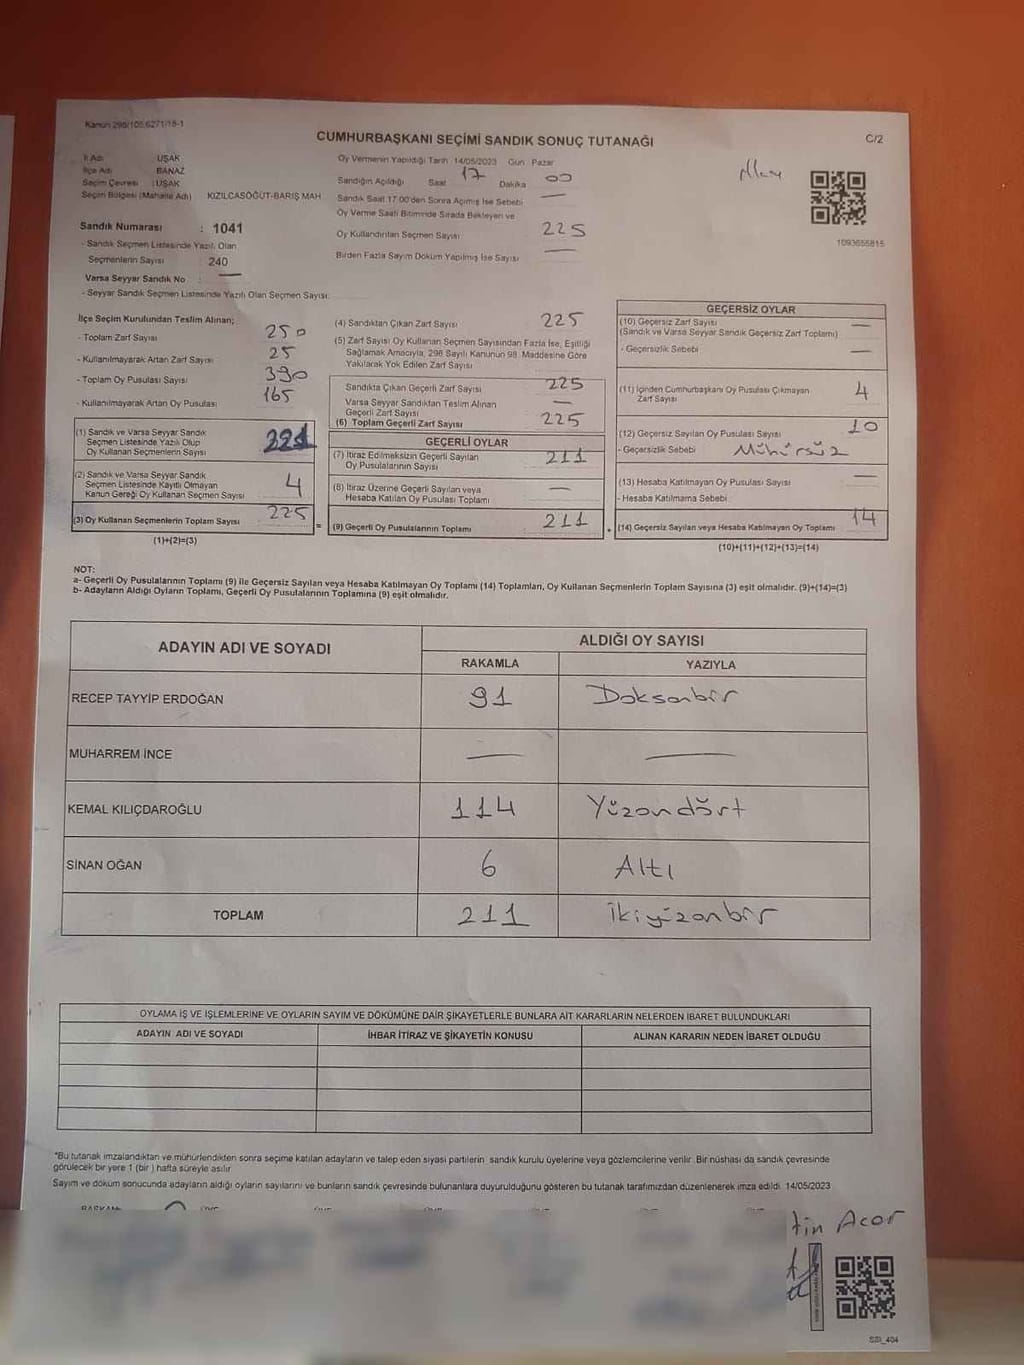 Kanun 298/105,6271/18-1
CUMHURBAŞKANI SEÇİMİ SANDIK SONUÇ TUTANAĞI
C/2
İl Adı UŞAK
İlçe Adı BANAZ
Seçim Çevresi : UŞAK
Seçim Bölgesi (Mahalle Adı) KIZILCASÖĞÜT-BARIŞ MAH
Sandık Numarası : 1041
- Sandık Seçmen Listesinde Yazılı Olan
Seçmenlerin Sayısı 240
Varsa Seyyar Sandık No —
- Seyyar Sandık Seçmen Listesinde Yazılı Olan Seçmen Sayısı:
Oy Vermenin Yapıldığı Tarih 14/05/2023 Gün Pazar
Sandığın Açıldığı Saat 17 Dakika 00
Sandık Saat 17:00'den Sonra Açılmış İse Sebebi —
Oy Verme Saati Bitiminde Sırada Bekleyen ve
Oy Kullandırılan Seçmen Sayısı 225
Birden Fazla Sayım Döküm Yapılmış İse Sayısı —
1093655815
İlçe Seçim Kurulundan Teslim Alınan;
- Toplam Zarf Sayısı 250
- Kullanılmayarak Artan Zarf Sayısı 25
- Toplam Oy Pusulası Sayısı 390
- Kullanılmayarak Artan Oy Pusulası 165
(1) Sandık ve Varsa Seyyar Sandık
Seçmen Listesinde Yazılı Olup
Oy Kullanan Seçmenlerin Sayısı 221
(2) Sandık ve Varsa Seyyar Sandık
Seçmen Listesinde Kayıtlı Olmayan
Kanun Gereği Oy Kullanan Seçmen Sayısı 4
(3) Oy Kullanan Seçmenlerin Toplam Sayısı 225
(1)+(2)=(3)
(4) Sandıktan Çıkan Zarf Sayısı 225
(5) Zarf Sayısı Oy Kullanan Seçmen Sayısından Fazla İse, Eşitliği
Sağlamak Amacıyla, 298 Sayılı Kanunun 98. Maddesine Göre
Yakılarak Yok Edilen Zarf Sayısı
Sandıkta Çıkan Geçerli Zarf Sayısı 225
Varsa Seyyar Sandıktan Teslim Alınan
Geçerli Zarf Sayısı —
(6) Toplam Geçerli Zarf Sayısı 225
GEÇERLİ OYLAR
(7) İtiraz Edilmeksizin Geçerli Sayılan
Oy Pusulalarının Sayısı 211
(8) İtiraz Üzerine Geçerli Sayılan veya
Hesaba Katılan Oy Pusulası Toplamı —
(9) Geçerli Oy Pusulalarının Toplamı 211
GEÇERSİZ OYLAR
(10) Geçersiz Zarf Sayısı —
(Sandık ve Varsa Seyyar Sandık Geçersiz Zarf Toplamı)
- Geçersizlik Sebebi —
(11) İçinden Cumhurbaşkanı Oy Pusulası Çıkmayan
Zarf Sayısı 4
(12) Geçersiz Sayılan Oy Pusulası Sayısı 10
- Geçersizlik Sebebi Mühürsüz
(13) Hesaba Katılmayan Oy Pusulası Sayısı —
- Hesaba Katılmama Sebebi
(14) Geçersiz Sayılan veya Hesaba Katılmayan Oy Toplamı 14
(10)+(11)+(12)+(13)=(14)
NOT:
a- Geçerli Oy Pusulalarının Toplamı (9) ile Geçersiz Sayılan veya Hesaba Katılmayan Oy Toplamı (14) Toplamları, Oy Kullanan Seçmenlerin Toplam Sayısına (3) eşit olmalıdır. (9)+(14)=(3)
b- Adayların Aldığı Oyların Toplamı, Geçerli Oy Pusulalarının Toplamına (9) eşit olmalıdır.
ADAYIN ADI VE SOYADI
ALDIĞI OY SAYISI
RAKAMLA YAZIYLA
RECEP TAYYİP ERDOĞAN 91 Doksanbir
MUHARREM İNCE — —
KEMAL KILIÇDAROĞLU 114 Yüzondört
SİNAN OĞAN 6 Altı
TOPLAM 211 İkiyüzonbir
OYLAMA İŞ VE İŞLEMLERİNE VE OYLARIN SAYIM VE DÖKÜMÜNE DAİR ŞİKAYETLERLE BUNLARA AİT KARARLARIN NELERDEN İBARET BULUNDUKLARI
ADAYIN ADI VE SOYADI İHBAR İTİRAZ VE ŞİKAYETİN KONUSU ALINAN KARARIN NEDEN İBARET OLDUĞU
*Bu tutanak imzalandıktan ve mühürlendikten sonra seçime katılan adayların ve talep eden siyasi partilerin sandık kurulu üyelerine veya gözlemcilerine verilir. Bir nüshası da sandık çevresinde
görülecek bir yere 1 (bir) hafta süreyle asılır.
Sayım ve döküm sonucunda adayların aldığı oyların sayılarını ve bunların sandık çevresinde bulunanlara duyurulduğunu gösteren bu tutanak tarafımızdan düzenlenerek imza edildi. 14/05/2023
tin Acar
SSI_404